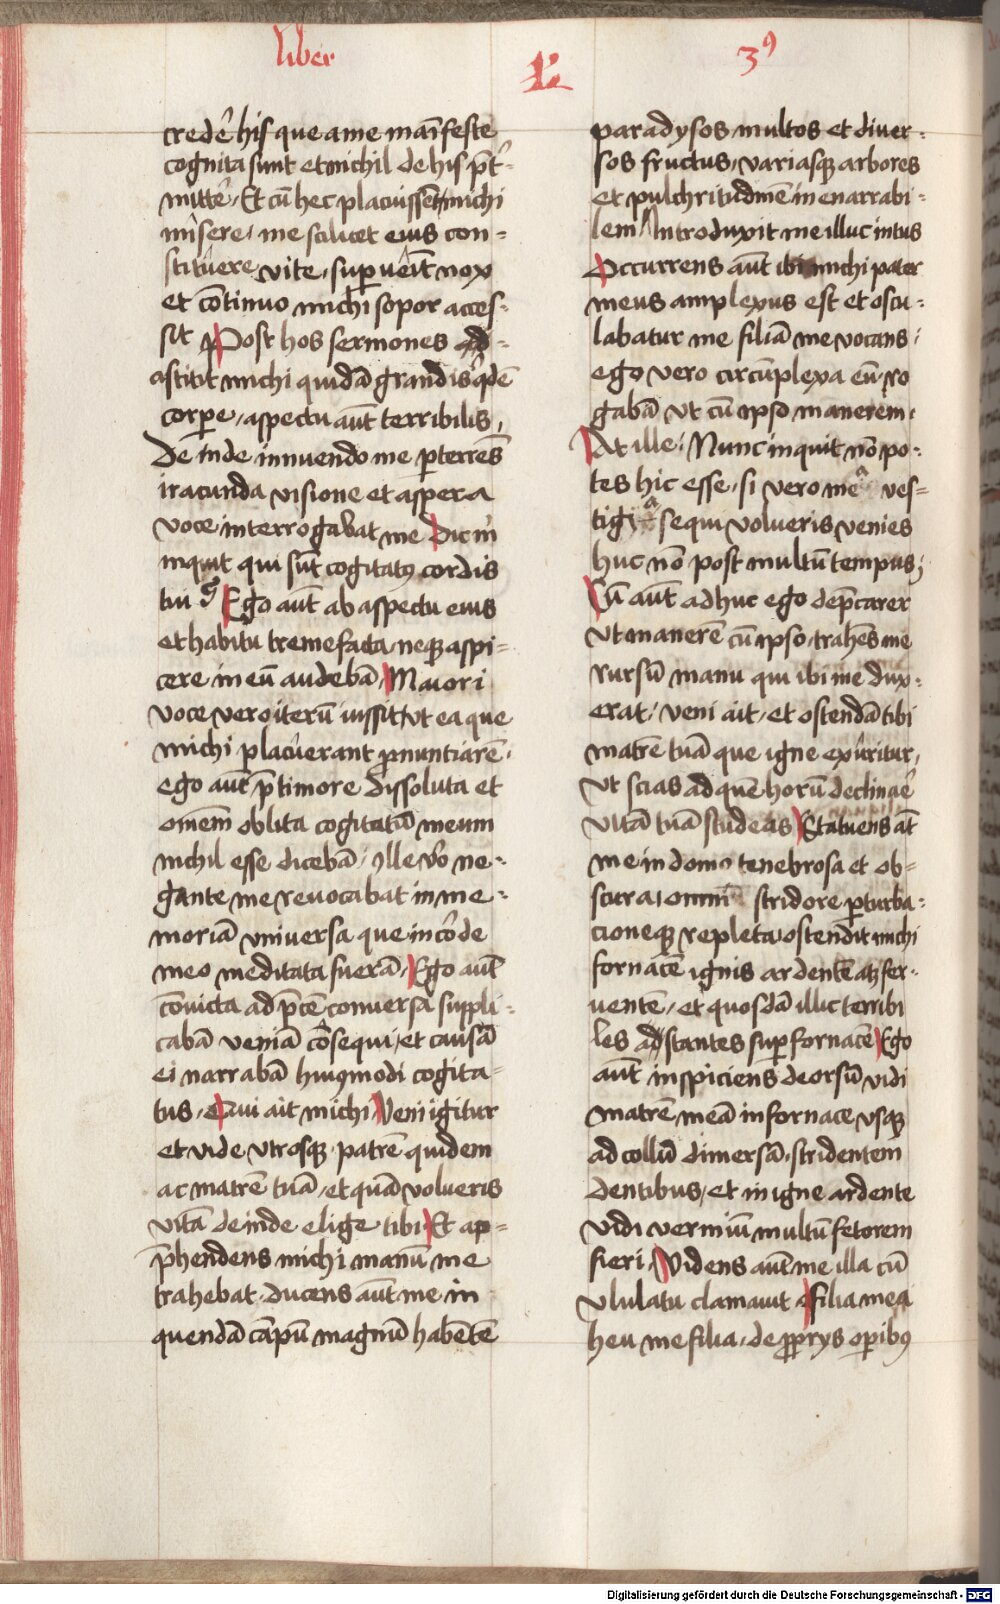 liber
L
3⁹
crede᷑ his que a me maīfeste
cognita sunt et nichil de his p̄t᷑-
mitte᷑. Et cū hec placuissēt michi
misere, me scilicet eius con-
stituere vite, superueīt nox
et cōtinuo michi sopor acces-
sit Post hos sermones
astitit michi quidā grandis q̇dē
corꝑe, aspectu aūt terribilis,
De inde innuendo me ꝑterrēs
iracunda visione et aspera
voce interrogabat me Dic m̄
inquit qui sūt cogitatꝰ cordis
tui Ego aūt ab aspectu eius
et habitu tremefacta neqꝫ aspi-
cere in eū audebā, Maiori
voce vero iterū iussit, vt ea que
michi placuerant ꝓnuntiarē.
ego aūt p̄ timore dissoluta et
omēm oblita cogitatū meum
nichil esse dicebā, Ille v̊o ne-
gante me reuocabat in me-
moriā vniuersa que in cor̄de
meo meditata fuerā, Ego aūt
cōuicta ad p̄ces conuersa suppli-
cabā veniā cōsequi, et causā
ei narrabā huiꝰmodi cogita-
tus. Qui ait michi, Veni igitur
et vide vtrosqꝫ patrē quidem
ac matrē tuā, et quā volueris
vitā deinde elige tibi Et ap-
p̄hendens michi manū me
trahebat. Ducens aūt me in
quendā cāpū magnū habētē
paradysos multos et diuer-
sos fructus, variasqꝫ arbores
et pulchritudinē inenarrabi-
lem, Introduxit me illuc intus
Occurrens aūt ibi michi pater
meus amplexus est et oscu-
labatur me filiā me vocans,
ego vero circūplexa eū ro
gabā vt cū ipso manerem.
At ille, Nunc inquit nō po-
tes hic esse, si vero mea ves-
tigia sequi volueris venies
huc nō post multū tempus;
Cū aūt adhuc ego dep̄carer
vt manerē cū ipso, trahēs me
rursū manu qui ibi me dux-
erat, veni ait, et ostendā tibi
matrē tuā que igne exuritur,
vt scias ad quē horū declinare᷑
vitā tuā studeas Statuens aūt
me in domo tenebrosa et ob-
scura, omni stridore ꝑturba-
cioneqꝫ repleta, ostendit michi
fornacē ignis ardentē atqꝫ fer-
uentē, et quosdā illic terribi
les adstantes suꝑ fornacē Ego
aūt inspiciens deorsū vidi
matrē meā in fornace vsqꝫ
ad collū dimersā, stridentem
dentibus, et in igne ardente
vidi vermiū multū fetorem
fieri, Videns aūt me illa cū
vlulatu clamauit filia mea
heu me filia, de ꝓprijs oꝑibꝰ
Digitalisierung gefördert durch die Deutsche Forschungsgemeinschaft - DFG